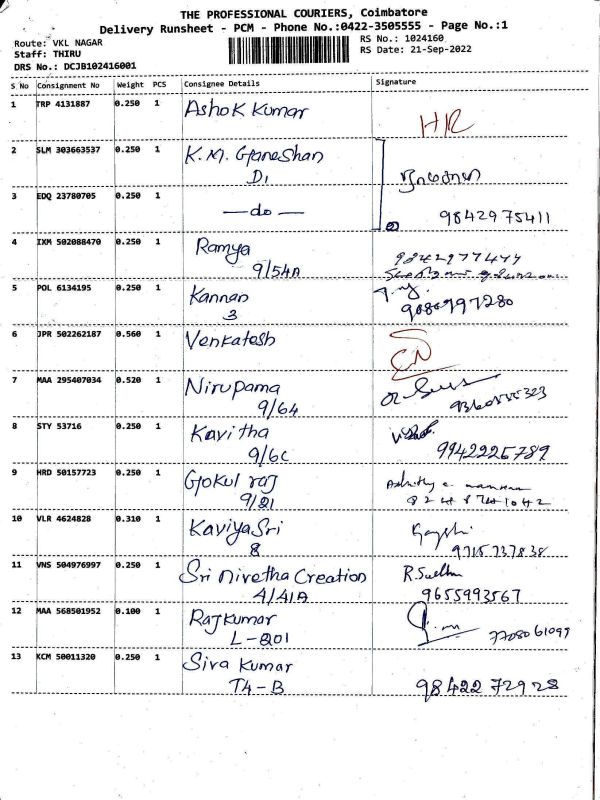 THE PROFESSIONAL COURIERS, Coimbatore
Delivery Runsheet - PCM - Phone No.:0422-3505555 - Page No.:1
Route: VKL NAGAR
Staff: THIRU
DRS No.: DCJB102416001
RS No.: 1024160
RS Date: 21-Sep-2022
S No Consignment No Weight PCS Consignee Details Signature
1 TRP 4131887 0.250 1 Ashok Kumar
HR
2 SLM 303663537 0.250 1 K.M. Ganeshan
D1
3 EDQ 23780705 0.250 1 —do— 9842975411
4 IXM 502088470 0.250 1 Ramya
9/54A
5 POL 6134195 0.250 1 Kannan
3 9080997280
6 JPR 502262187 0.560 1 Venkatesh
7 MAA 295407034 0.520 1 Nirupama
9/64
8 STY 53716 0.250 1 Kavitha
9/6C 9942225789
9 HRD 50157723 0.250 1 Gokul raj
9/21 8248741042
10 VLR 4624828 0.310 1 KaviyaSri
8 9715737838
11 VNS 504976997 0.250 1 Sri nivetha Creation
4/41A 9655993567
12 MAA 568501952 0.100 1 Rajkumar
L-201 7708061099
13 KCM 50011320 0.250 1 Siva Kumar
T4-B 9842272928